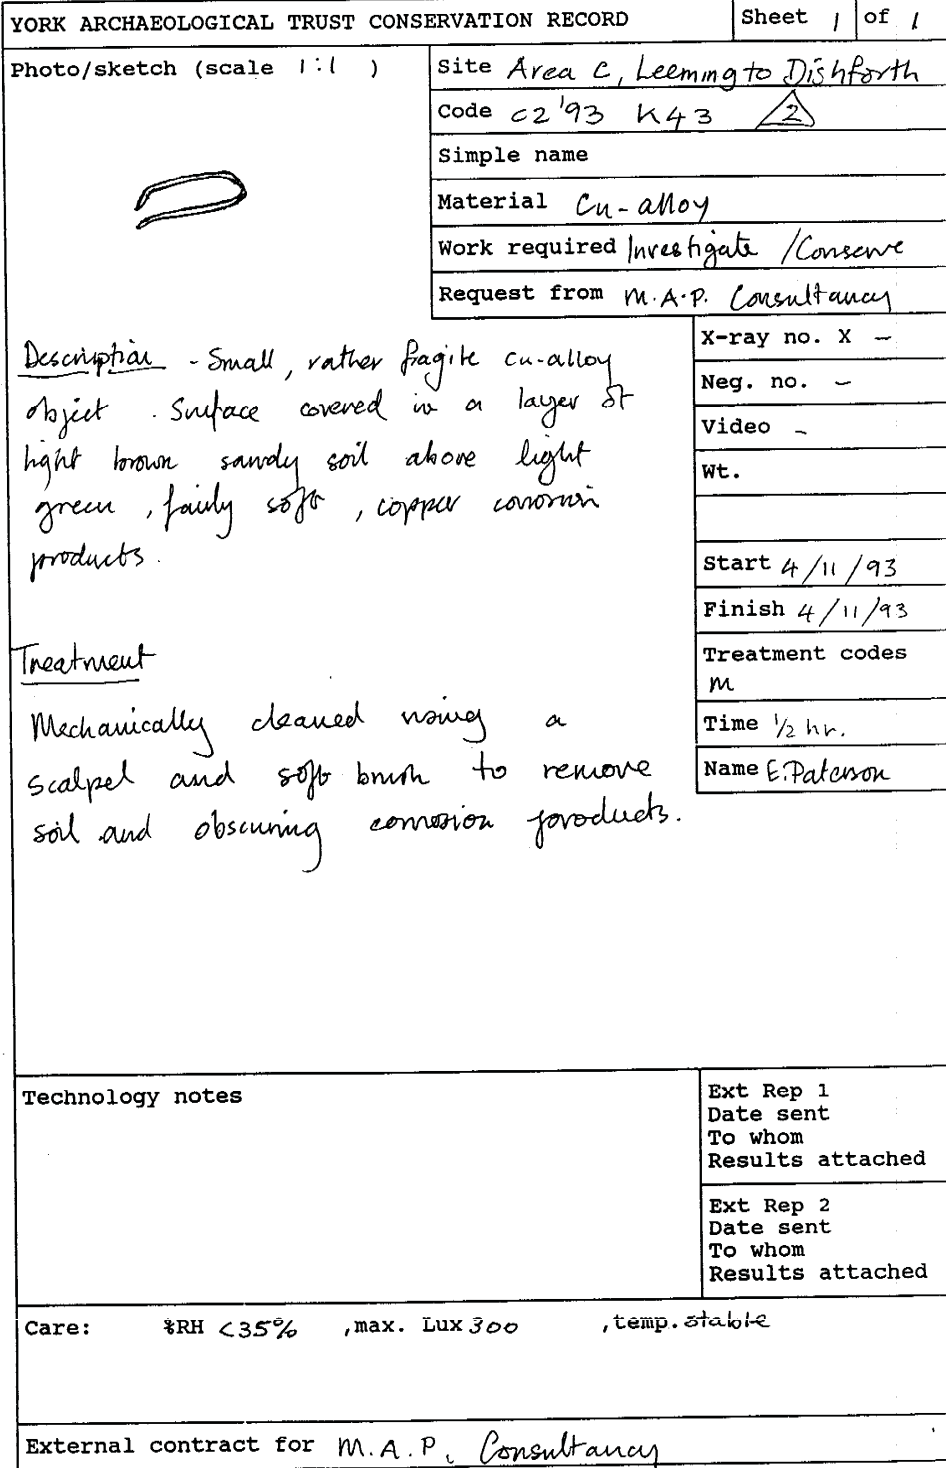 YORK ARCHAEOLOGICAL TRUST CONSERVATION RECORD
Sheet 1 of 1
Photo/sketch (scale 1:1 )
Site Area C, Leeming to Dishforth
Code C2'93 K43 2
Simple name
Material Cu-alloy
Work required Investigate /Conserve
Request from M.A.P. Consultancy
X-ray no. X -
Neg. no. -
Video -
Wt.
Start 4/11/93
Finish 4/11/93
Treatment codes
M
Time 1/2 hr.
Name E.Paterson
Description - Small, rather fragile cu-alloy
object. Surface covered in a layer of
light brown sandy soil above light
green, fairly soft, copper corrosion
products.
Treatment
Mechanically cleaned using a
scalpel and soft brush to remove
soil and obscuring corrosion products.
Technology notes
Ext Rep 1
Date sent
To whom
Results attached
Ext Rep 2
Date sent
To whom
Results attached
Care: %RH <35% ,max. Lux 300 ,temp. stable
External contract for M.A.P. Consultancy